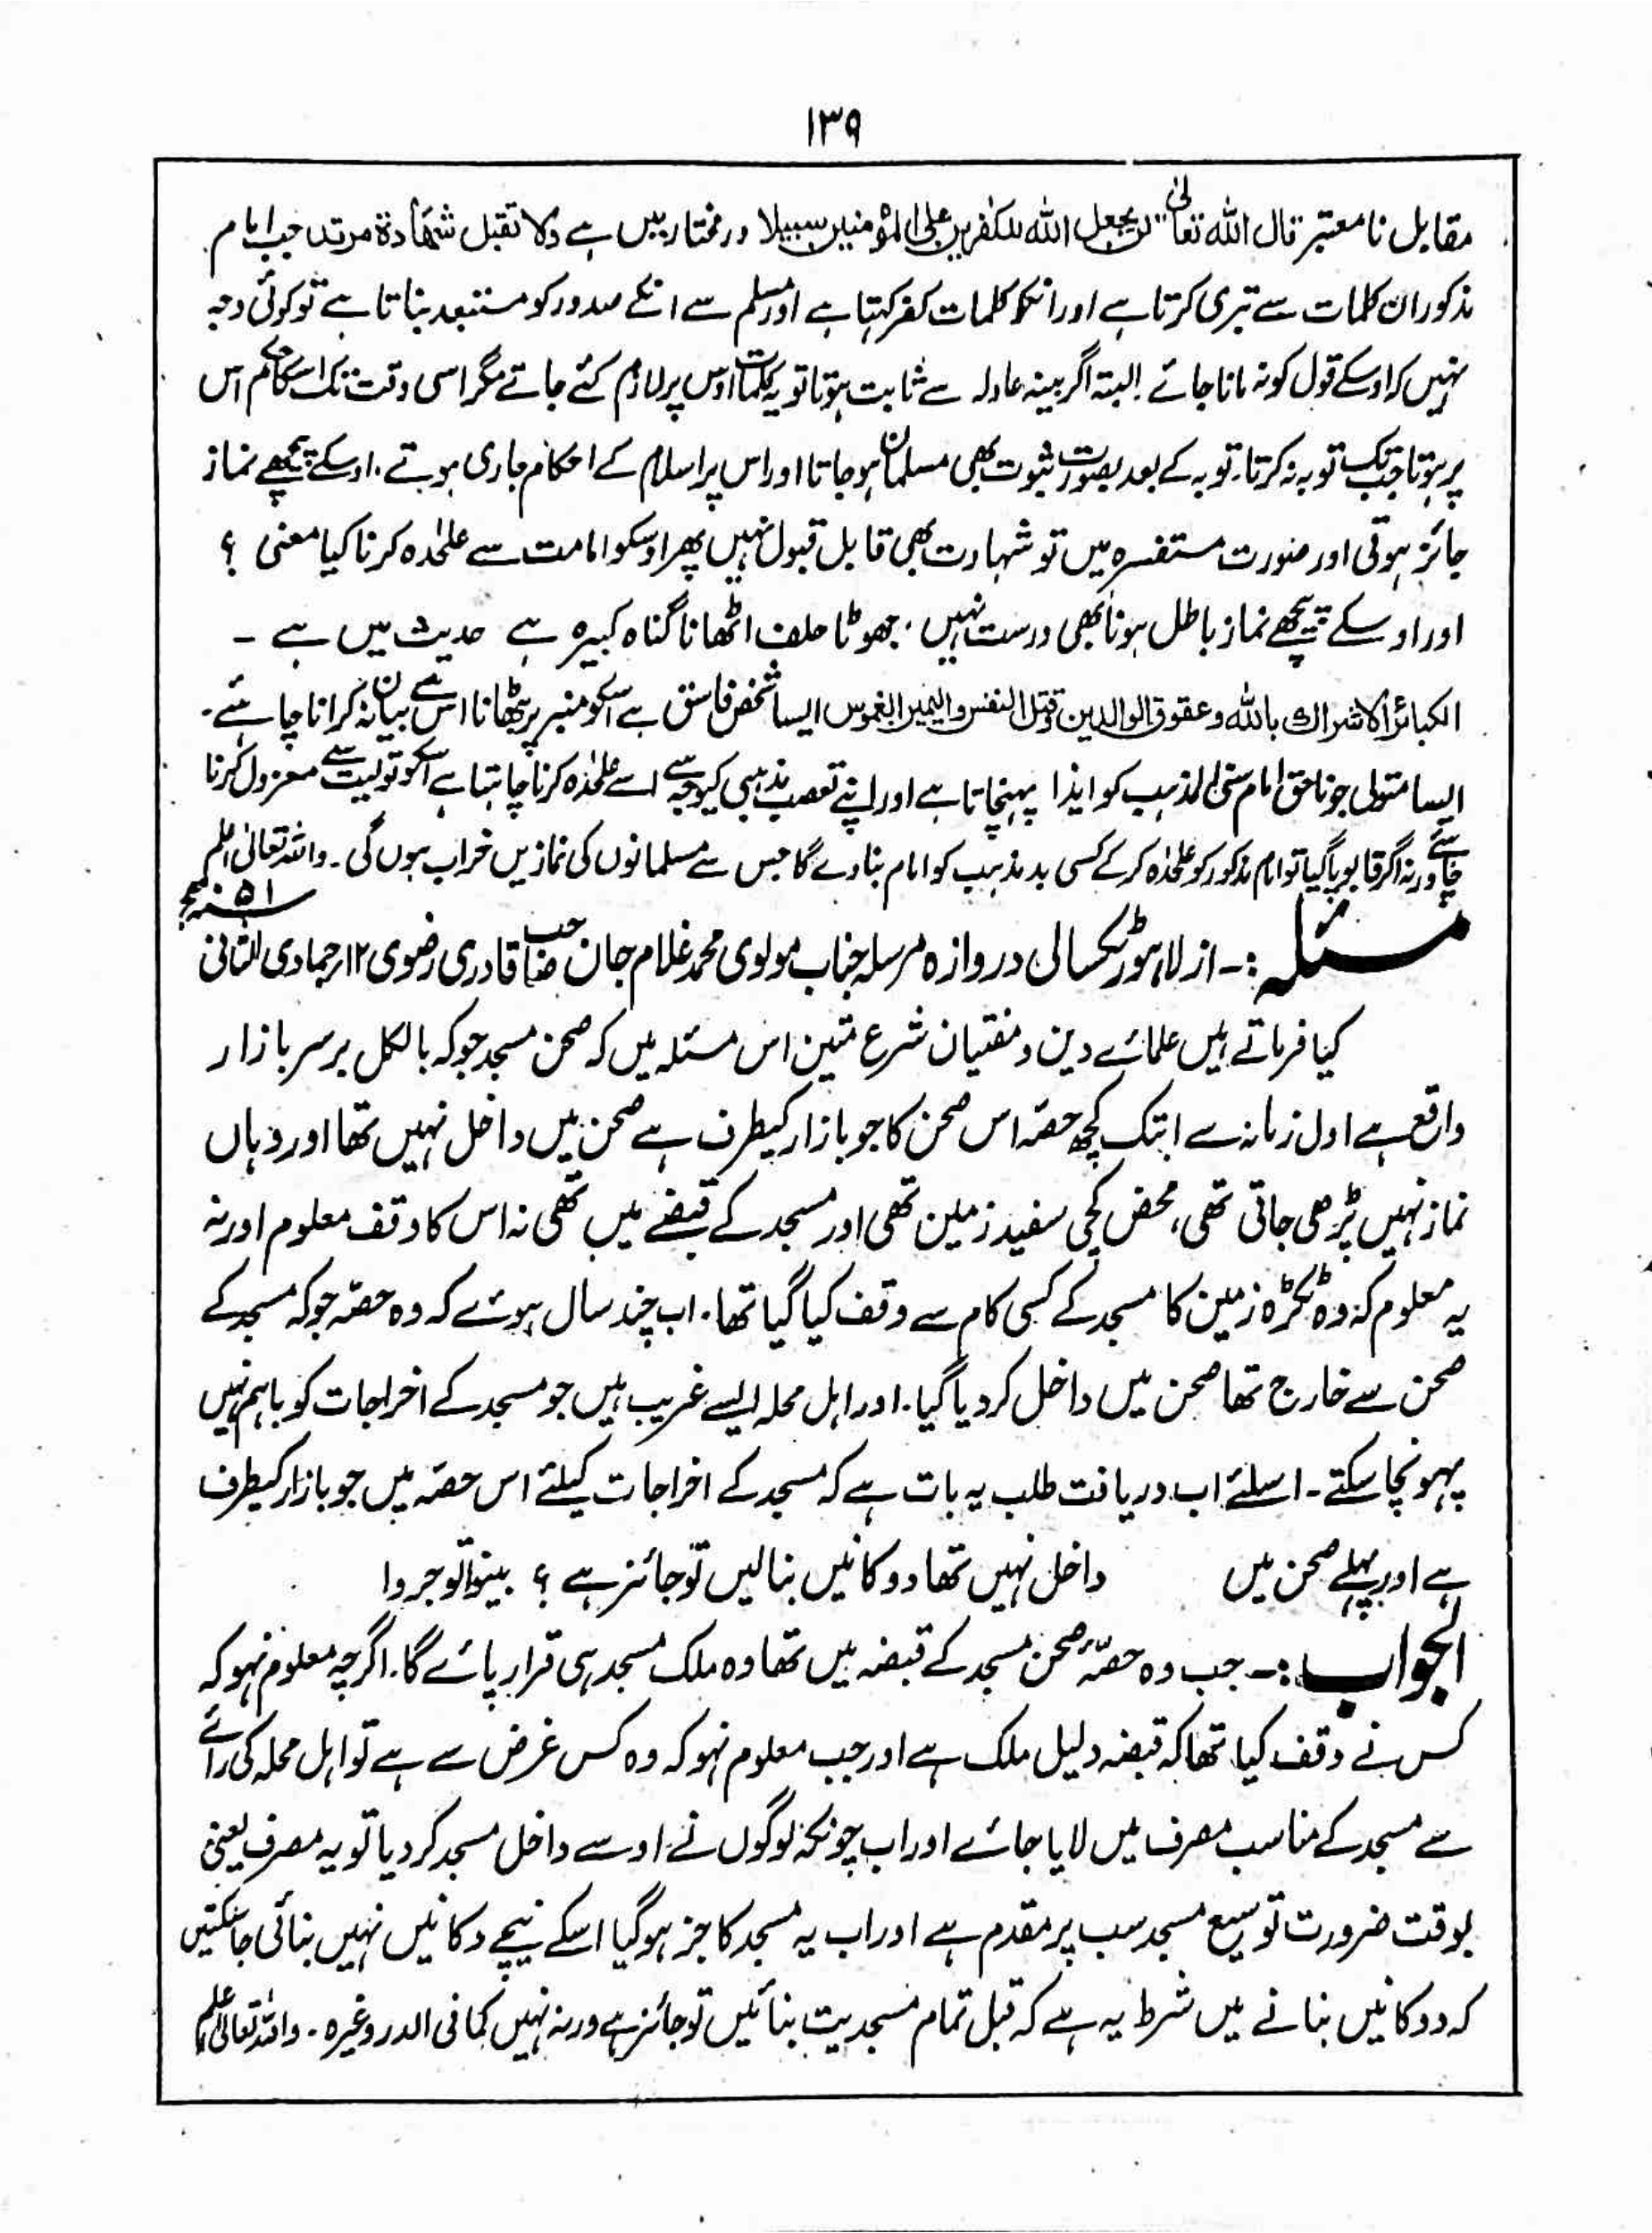 ۱۳۹
مقابل نا معتبر قال اللہ تعالیٰ "لن یجعل اللہ للکٰفرین علی المؤمنین سبیلا درمختار میں ہے ولا تقبل شھادۃ مرتد جب امام
مذکور ان کلمات سے تبری کرتا ہے اور انکو کلمات کفر کہتا ہے اور مسلم سے انکے صدور کو مستبعد بتاتا ہے تو کوئی وجہ
نہیں کہ اوسکے قول کو نہ مانا جائے البتہ اگر بینہ عادلہ سے ثابت ہوتا تو یہ کلمات اوس پر لازم کئے جاتے مگر اسی وقت تک اسکا حکم اس
پر ہوتا جبتک توبہ نہ کرتا۔ توبہ کے بعد بصورت ثبوت بھی مسلمان ہو جاتا اور اس پر اسلام کے احکام جاری ہوتے۔ اوسکے پیچھے نماز
جائز ہوتی اور صورت مستفسرہ میں تو شہادت بھی قابل قبول نہیں پھر اوسکو امامت سے علٰحدہ کرنا کیا معنی ؟
اور اوسکے پیچھے نماز باطل ہونا بھی درست نہیں، جھوٹا حلف اٹھانا گناہ کبیرہ ہے حدیث میں ہے ۔
الکبائر الاشراک باللہ وعقوق الوالدین وقتل النفس والیمین الغموس ایسا شخص فاسق ہے اسکو منبر پر بٹھانا اس سے بیان نہ کرانا چاہئے۔
ایسا متولی جو ناحق امام سنی المذہب کو ایذا پہنچاتا ہے اور اپنے تعصب مذہبی کیوجہ سے اسے علٰحدہ کرنا چاہتا ہے اسکو تولیت سے معزول کرنا
چاہئے ورنہ اگر قابو پا گیا تو امام مذکور کو علٰحدہ کر کے کسی بد مذہب کو امام بنا دے گا جس سے مسلمانوں کی نمازیں خراب ہوں گی۔ واللہ تعالیٰ اعلم
مسئلہ :۔ از لاہور ٹکسالی دروازہ مرسلہ جناب مولوی محمد غلام جان صاحب قادری رضوی ۱۲ جمادی الثانی ۵۱ھ
کیا فرماتے ہیں علمائے دین و مفتیان شرع متین اس مسئلہ میں کہ صحن مسجد جو کہ بالکل برسر بازار
واقع ہے اول زمانہ سے ابتک کچھ حصہ اس صحن کا جو بازار کیطرف ہے صحن میں داخل نہیں تھا اور وہاں
نماز نہیں پڑھی جاتی تھی، محض کچی سفید زمین تھی اور مسجد کے قبضے میں تھی نہ اس کا وقف معلوم اور نہ
یہ معلوم کہ وہ ٹکڑہ زمین کا مسجد کے کسی کام سے وقف کیا گیا تھا۔ اب چند سال ہوئے کہ وہ حصہ جو کہ مسجد کے
صحن سے خارج تھا صحن میں داخل کر دیا گیا۔ اور اہل محلہ ایسے غریب ہیں جو مسجد کے اخراجات کو باہم نہیں
پہونچا سکتے۔ اسلئے اب دریافت طلب یہ بات ہے کہ مسجد کے اخراجات کیلئے اس حصہ میں جو بازار کیطرف
ہے اور پہلے صحن میں داخل نہیں تھا دوکانیں بنا لیں تو جائز ہے ؟ بینوا توجروا
الجواب :۔ جب وہ حصۂ صحن مسجد کے قبضہ میں تھا وہ ملک مسجد ہی قرار پائے گا۔ اگرچہ معلوم نہو کہ
کس نے وقف کیا تھا کہ قبضہ دلیل ملک ہے اور جب معلوم نہو کہ وہ کس غرض سے ہے تو اہل محلہ کی رائے
سے مسجد کے مناسب مصرف میں لایا جائے اور اب چونکہ لوگوں نے اوسے داخل مسجد کر دیا تو یہ مصرف یعنی
بوقت ضرورت توسیع مسجد سب پر مقدم ہے اور اب یہ مسجد کا جز ہو گیا اسکے نیچے دکانیں نہیں بنائی جا سکتیں
کہ دوکانیں بنانے میں شرط یہ ہے کہ قبل تمام مسجدیت بنائیں تو جائز ہے ورنہ نہیں کما فی الدر وغیرہ۔ واللہ تعالیٰ اعلم